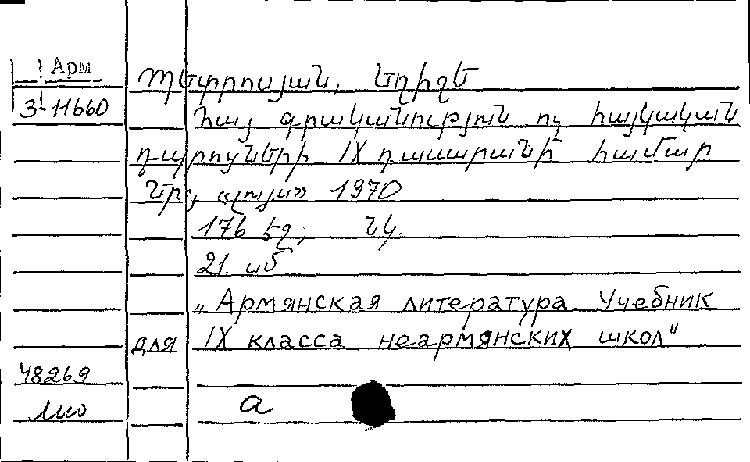 Арм
3111660
Պետրոսյան, Եղիշե
Հայ գրականություն ոչ հայկական
դպրոցների IX դասարանի համար
Եր., «Լույս» 1970
176 էջ, նկ.
21 սմ
„Армянская литература. Учебник
для IX класса неармянских школ"
48269
а